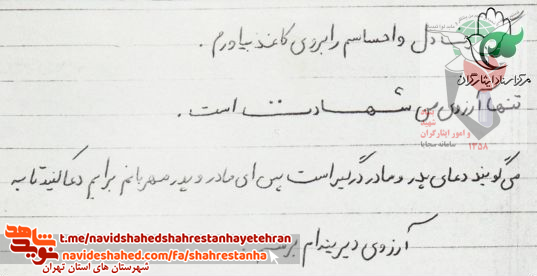 دل و احساسم را بروی کاغذ بیاورم .
مرکز اسناد ایثارگران
تنها آرزوی من شهادت است .
بنیاد
شهید
و امور ایثارگران
سامانه سجایا
۱۳۵۸
می گویند دعای پدر و مادر درگیر است پس ای مادر و پدر مهربانم برایم دعا کنید تا به
آرزوی دیرینه ام
نوید شاهد
t.me/navidshahedshahrestanhayetehran
navideshahed.com/fa/shahrestanha
شهرستان های استان تهران